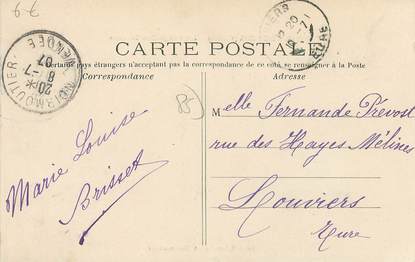 CARTE POSTALE
Certains pays étrangers n'acceptant pas la correspondance de ce côté, se renseigner à la Poste
Correspondance
Adresse
NOIRMOUTIER
VENDÉE
20 *
8 -7
07
EURE
B5
Marie Louise
Brisset
Melle Fernande Prevost
rue des Hayes Mélines
Louviers
Eure